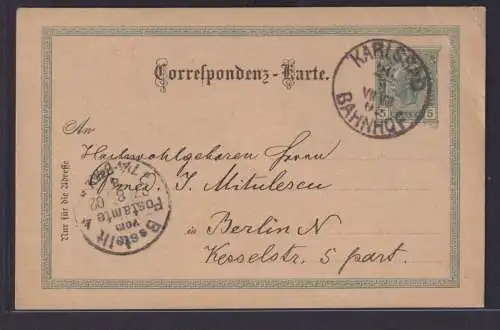 KARLSBAD
BAHNHOF
5 5
Correspondenz-Karte.
An
Hochwohlgeboren Herrn
I. Mitulescu
in Berlin N
Kesselstr. 5 part.
Nur für die Adresse
Bestellt
vom
Postamte
27.8.02